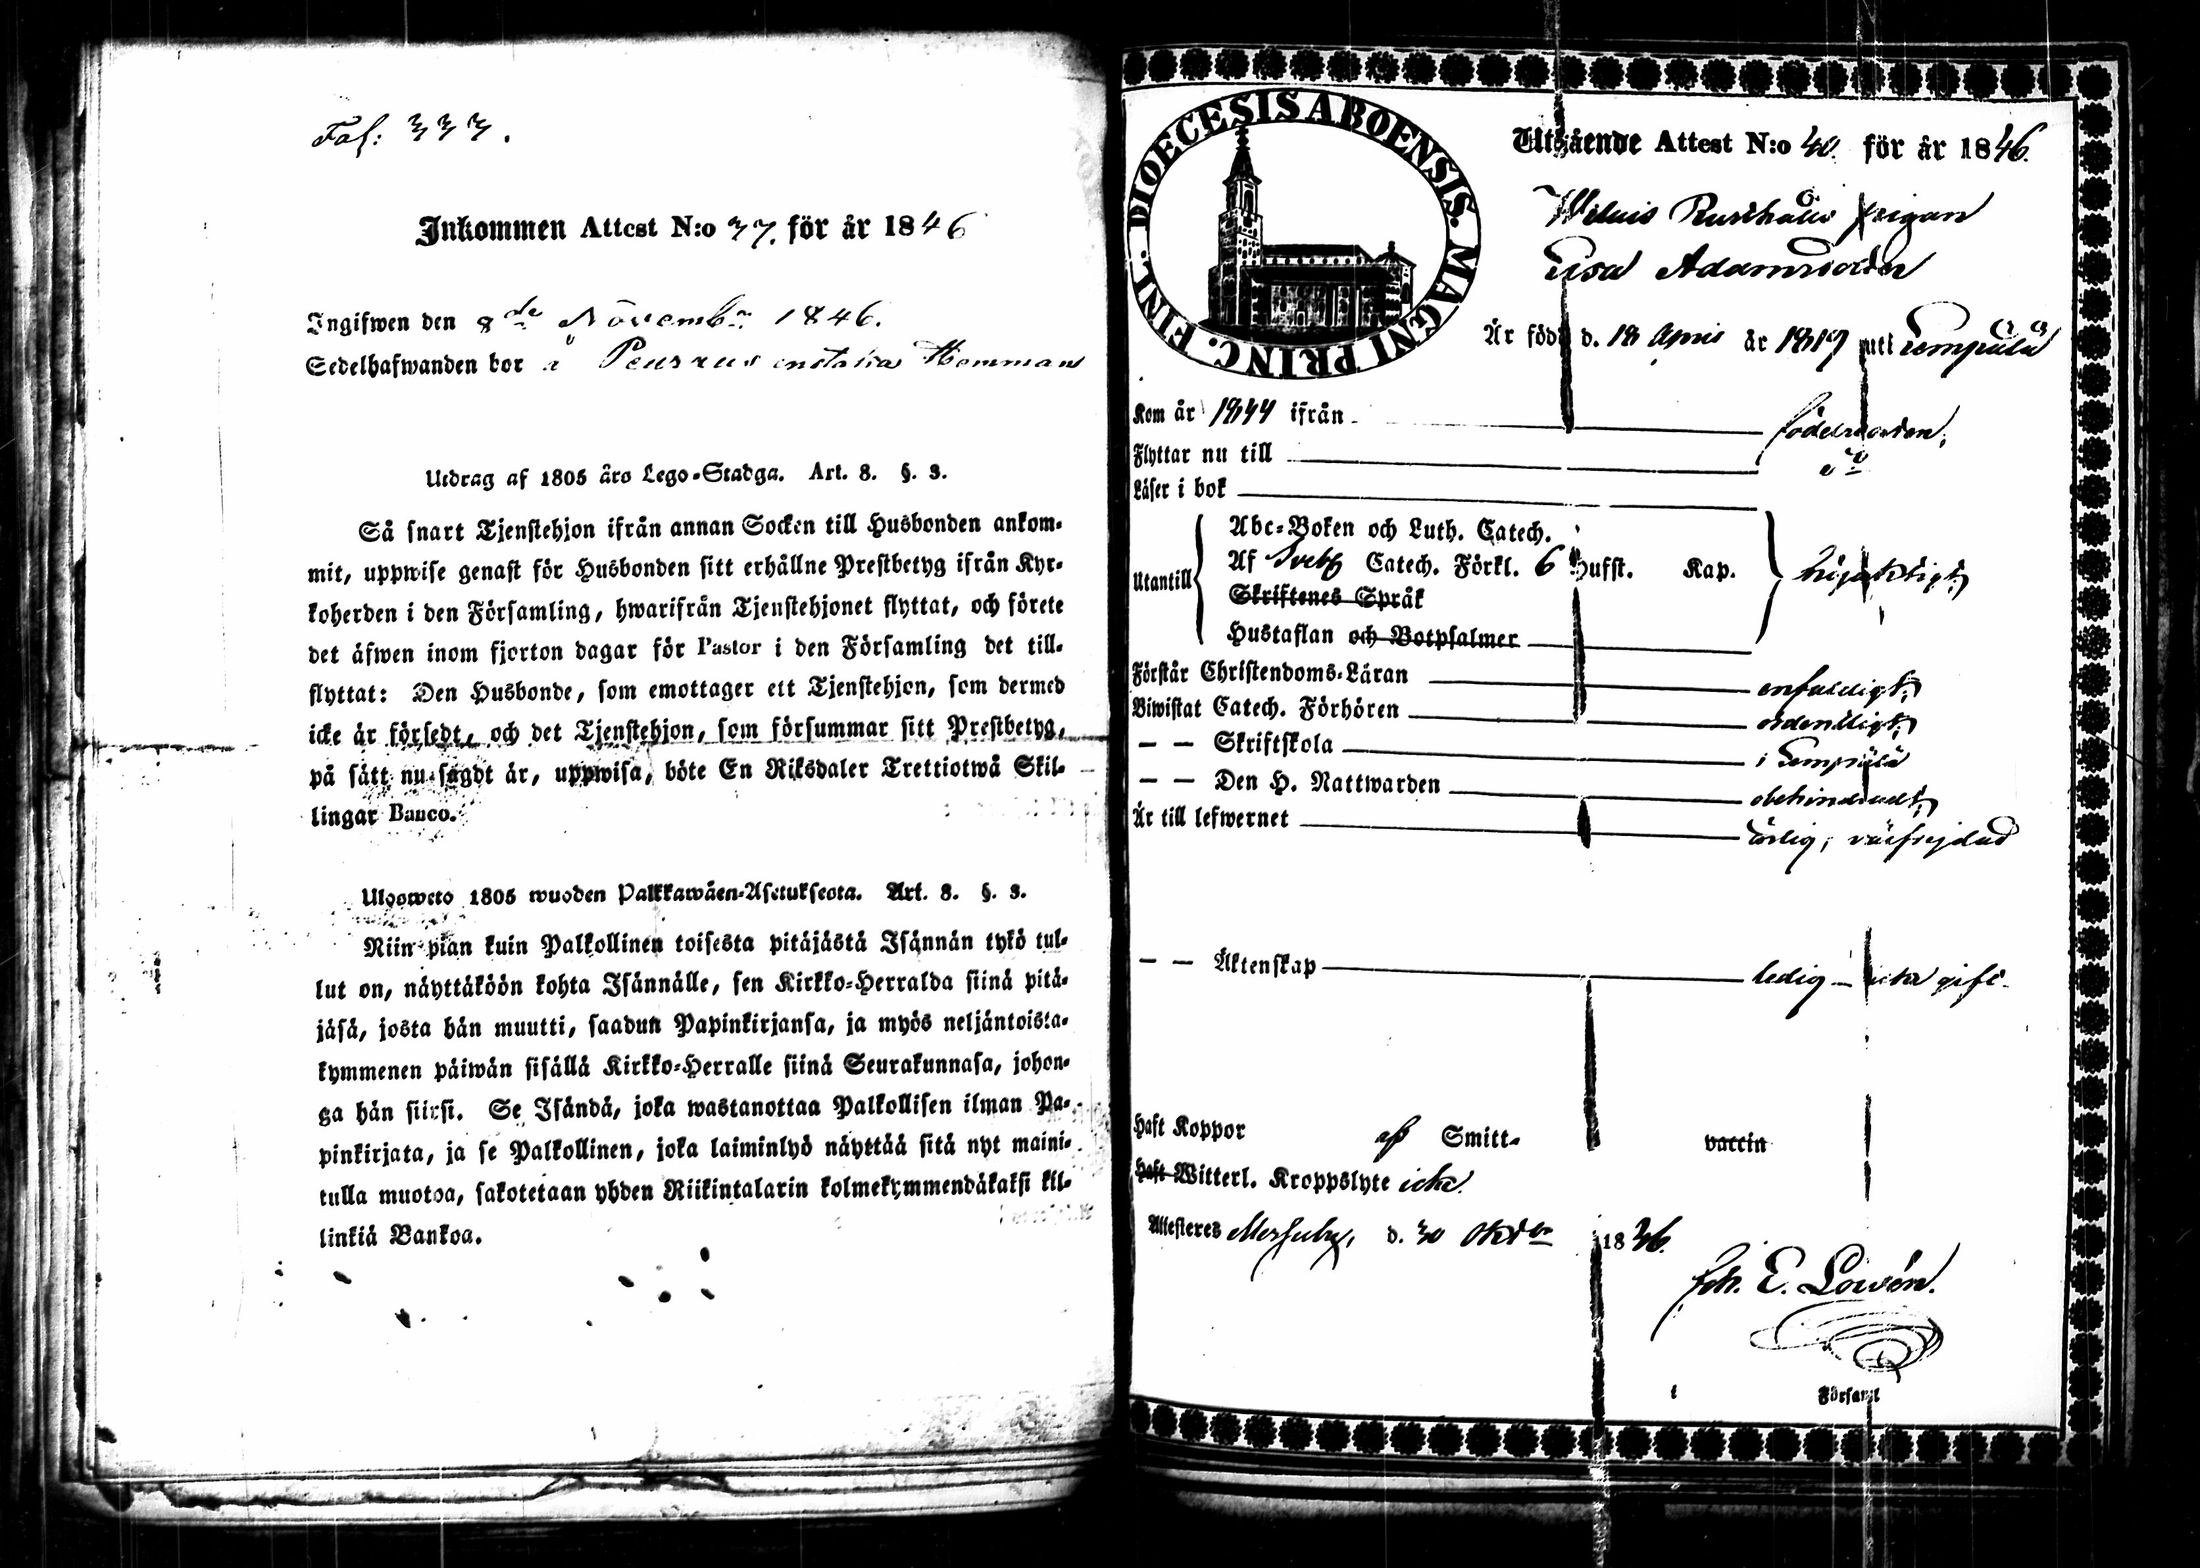 Fol: 333.
Inkommen Attest N:o 37. för år 1846
Ingifwen den 8de Novembr 1846.
Sedelhafwanden bor å Hemman
Utdrag af 1805 års Lego-Stadga. Art. 8. §. 3.
Så snart Tjenstehjon ifrån annan Socken till Husbonden ankom-
mit, uppwise genast för Husbonden sitt erhållne Prestbetyg ifrån Kyr-
koherden i den Församling, hwarifrån Tjenstehjonet flyttat, och förete
det äfwen inom fjorton dagar för Pastor i den Församling det till-
flyttat: Den Husbonde, som emottager ett Tjenstehjon, som dermed
icke är försedt, och det Tjenstehjon, som försummar sitt Prestbetyg,
på sätt nu sagdt är, uppwisa, böte En Riksdaler Trettiotwå Skil-
lingar Banco.
Ulosweto 1805 wuoden Palkkawäen-Asetuksesta. Art. 8. §. 3.
Niin pian kuin Palkollinen toisesta pitäjästä Isännän tykö tul-
lut on, näyttäköön kohta Isännälle, sen Kirkko-Herralda siinä pitä-
jäsä, josta hän muutti, saadun Papinkirjansa, ja myös neljäntoista-
kymmenen päiwän sisällä Kirkko-Herralle siinä Seurakunnasa, johon-
ga hän siirsi. Se Isändä, joka wastanottaa Palkollisen ilman Pa-
pinkirjata, ja se Palkollinen, joka laiminlyö näyttää sitä nyt maini-
tulla muotoa, sakotetaan yhden Riikintalarin kolmekymmendäkaksi kil-
linkiä Bankoa.
DIOECESIS ABOENSIS. MAGNI PRINC. FINL.
Utgående Attest N:o 40. för år 1846.
Rusthålls pigan
Lisa Adamsdotter
Är född d. 18 April år 1819 uti Lempälä
Kom år 1844 ifrån födelseorten,
Flyttar nu till do
Läser i bok
Utantill
Abc-Boken och Luth. Catech.
Af Sveb. Catech. Förkl. 6 Hufst. Kap.
Skriftenes Språk
Hustaflan och Botpsalmer
Förstår Christendoms-Läran enfaldigt,
Biwistat Catech. Förhören ordentligt,
— — Skriftskola i Lempälä
— — Den H. Nattwarden obehindradt,
Är till lefwernet ärlig, välfrejdad
— — Äktenskap ledig — icke gift.
Haft Koppor af Smitt- vaccin
Haft Witterl. Kroppslyte icke.
Attesteres d. 30 Oktobr 1846.
Joh. E. Lowén.
i Församl